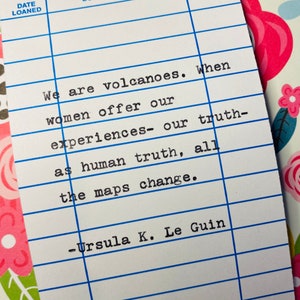 DATE
LOANED
We are volcanoes. When
women offer our
experiences- our truth-
as human truth, all
the maps change.
-Ursula K. Le Guin